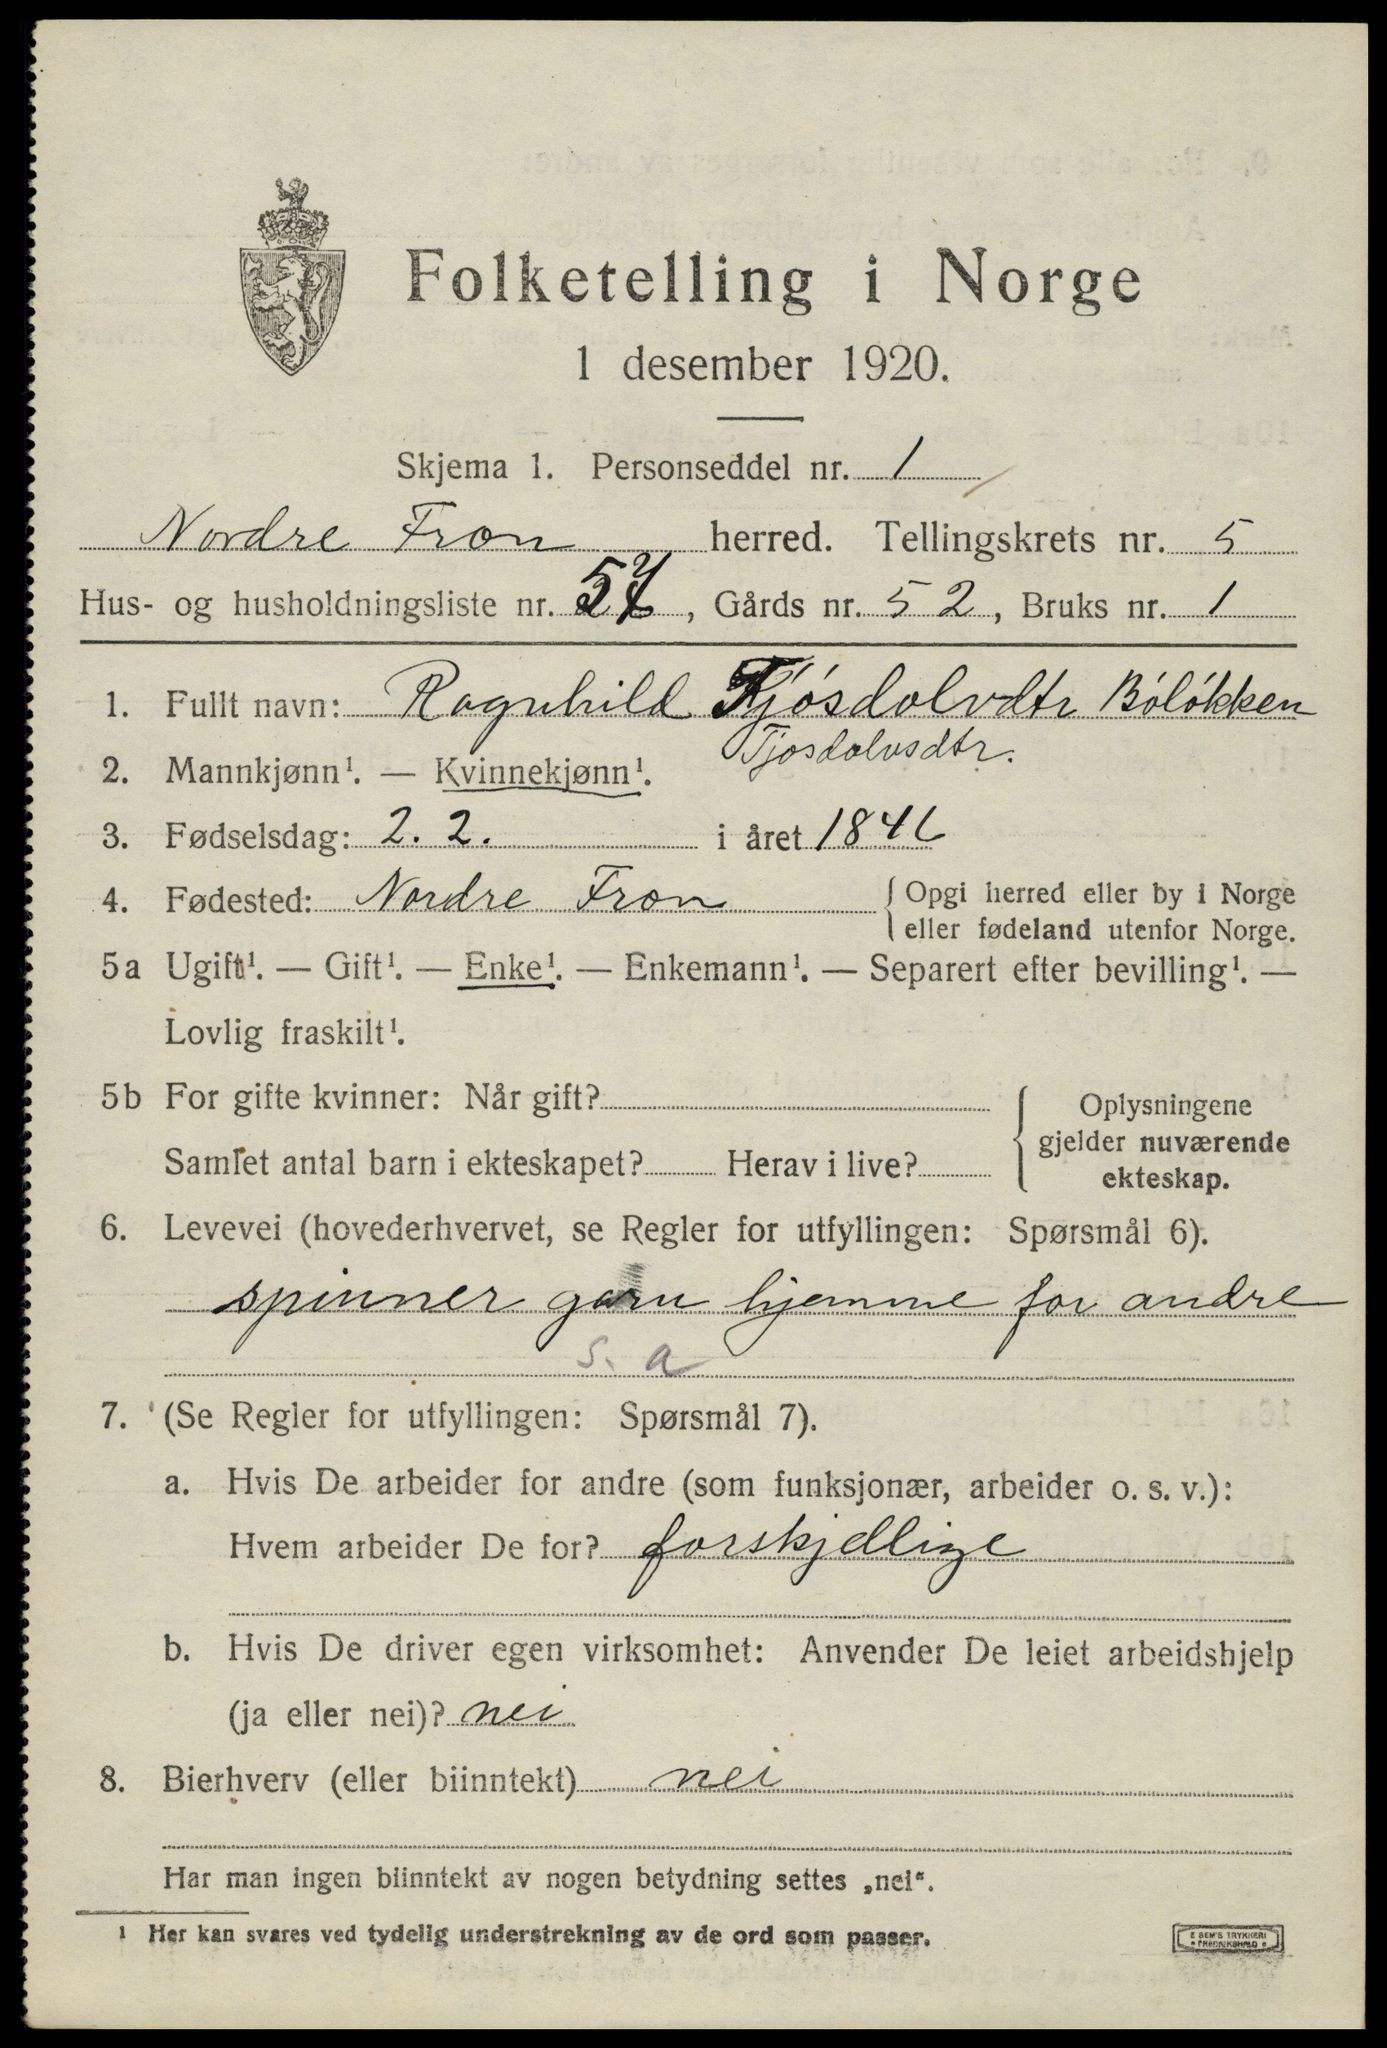 Folketelling i Norge
1 desember 1920.
Skjema 1. Personseddel nr. 1
Nordre Fron herred. Tellingskrets nr. 5
Hus- og husholdningsliste nr. 57, Gårds nr. 52, Bruks nr. 1
1. Fullt navn: Ragnhild Tjósdolvdtr Bóløkken
Tjosdolvsdtr.
2. Mannkjønn¹. — Kvinnekjønn¹.
3. Fødselsdag: 2. 2. i året 1846
4. Fødested: Nordre Fron { Opgi herred eller by i Norge
eller fødeland utenfor Norge.
5a Ugift¹. — Gift¹. — Enke¹. — Enkemann¹. — Separert efter bevilling¹. —
Lovlig fraskilt¹.
5b For gifte kvinner: Når gift?
Samlet antal barn i ekteskapet? Herav i live?
{ Oplysningene
gjelder nuværende
ekteskap.
6. Levevei (hovederhvervet, se Regler for utfyllingen: Spørsmål 6).
spinner garn hjemme for andre
s. a
7. (Se Regler for utfyllingen: Spørsmål 7).
a. Hvis De arbeider for andre (som funksjonær, arbeider o. s. v.):
Hvem arbeider De for? forskjellige
b. Hvis De driver egen virksomhet: Anvender De leiet arbeidshjelp
(ja eller nei)? nei
8. Bierhverv (eller biinntekt) nei
Har man ingen biinntekt av nogen betydning settes „nei“.
¹ Her kan svares ved tydelig understrekning av de ord som passer.
E SEM'S TRYKKERI
• FREDRIKSHALD •